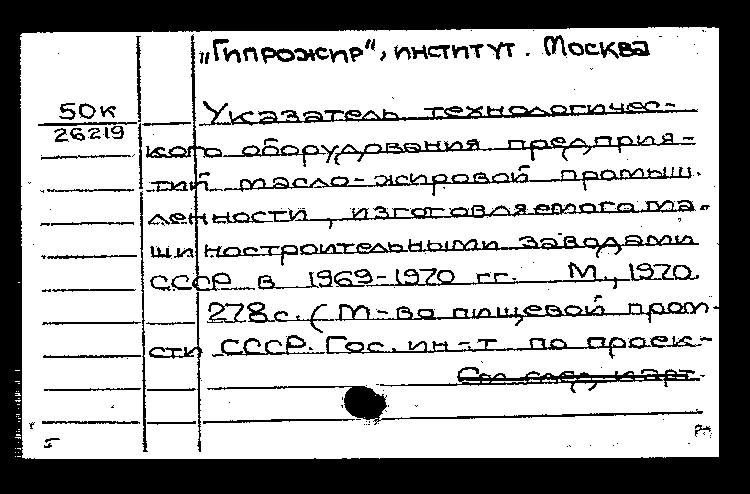 „Гипрожир“, институт. Москва
50к
26219
Указатель технологичес-
кого оборудования предприя-
тий масло-жировой промыш-
ленности, изготовляемого ма-
шиностроительными заводами
СССР в 1969-1970 гг. М., 1970.
278с. (М-во пищевой пром-
сти СССР. Гос. ин-т по проек-
См. след. карт.
5